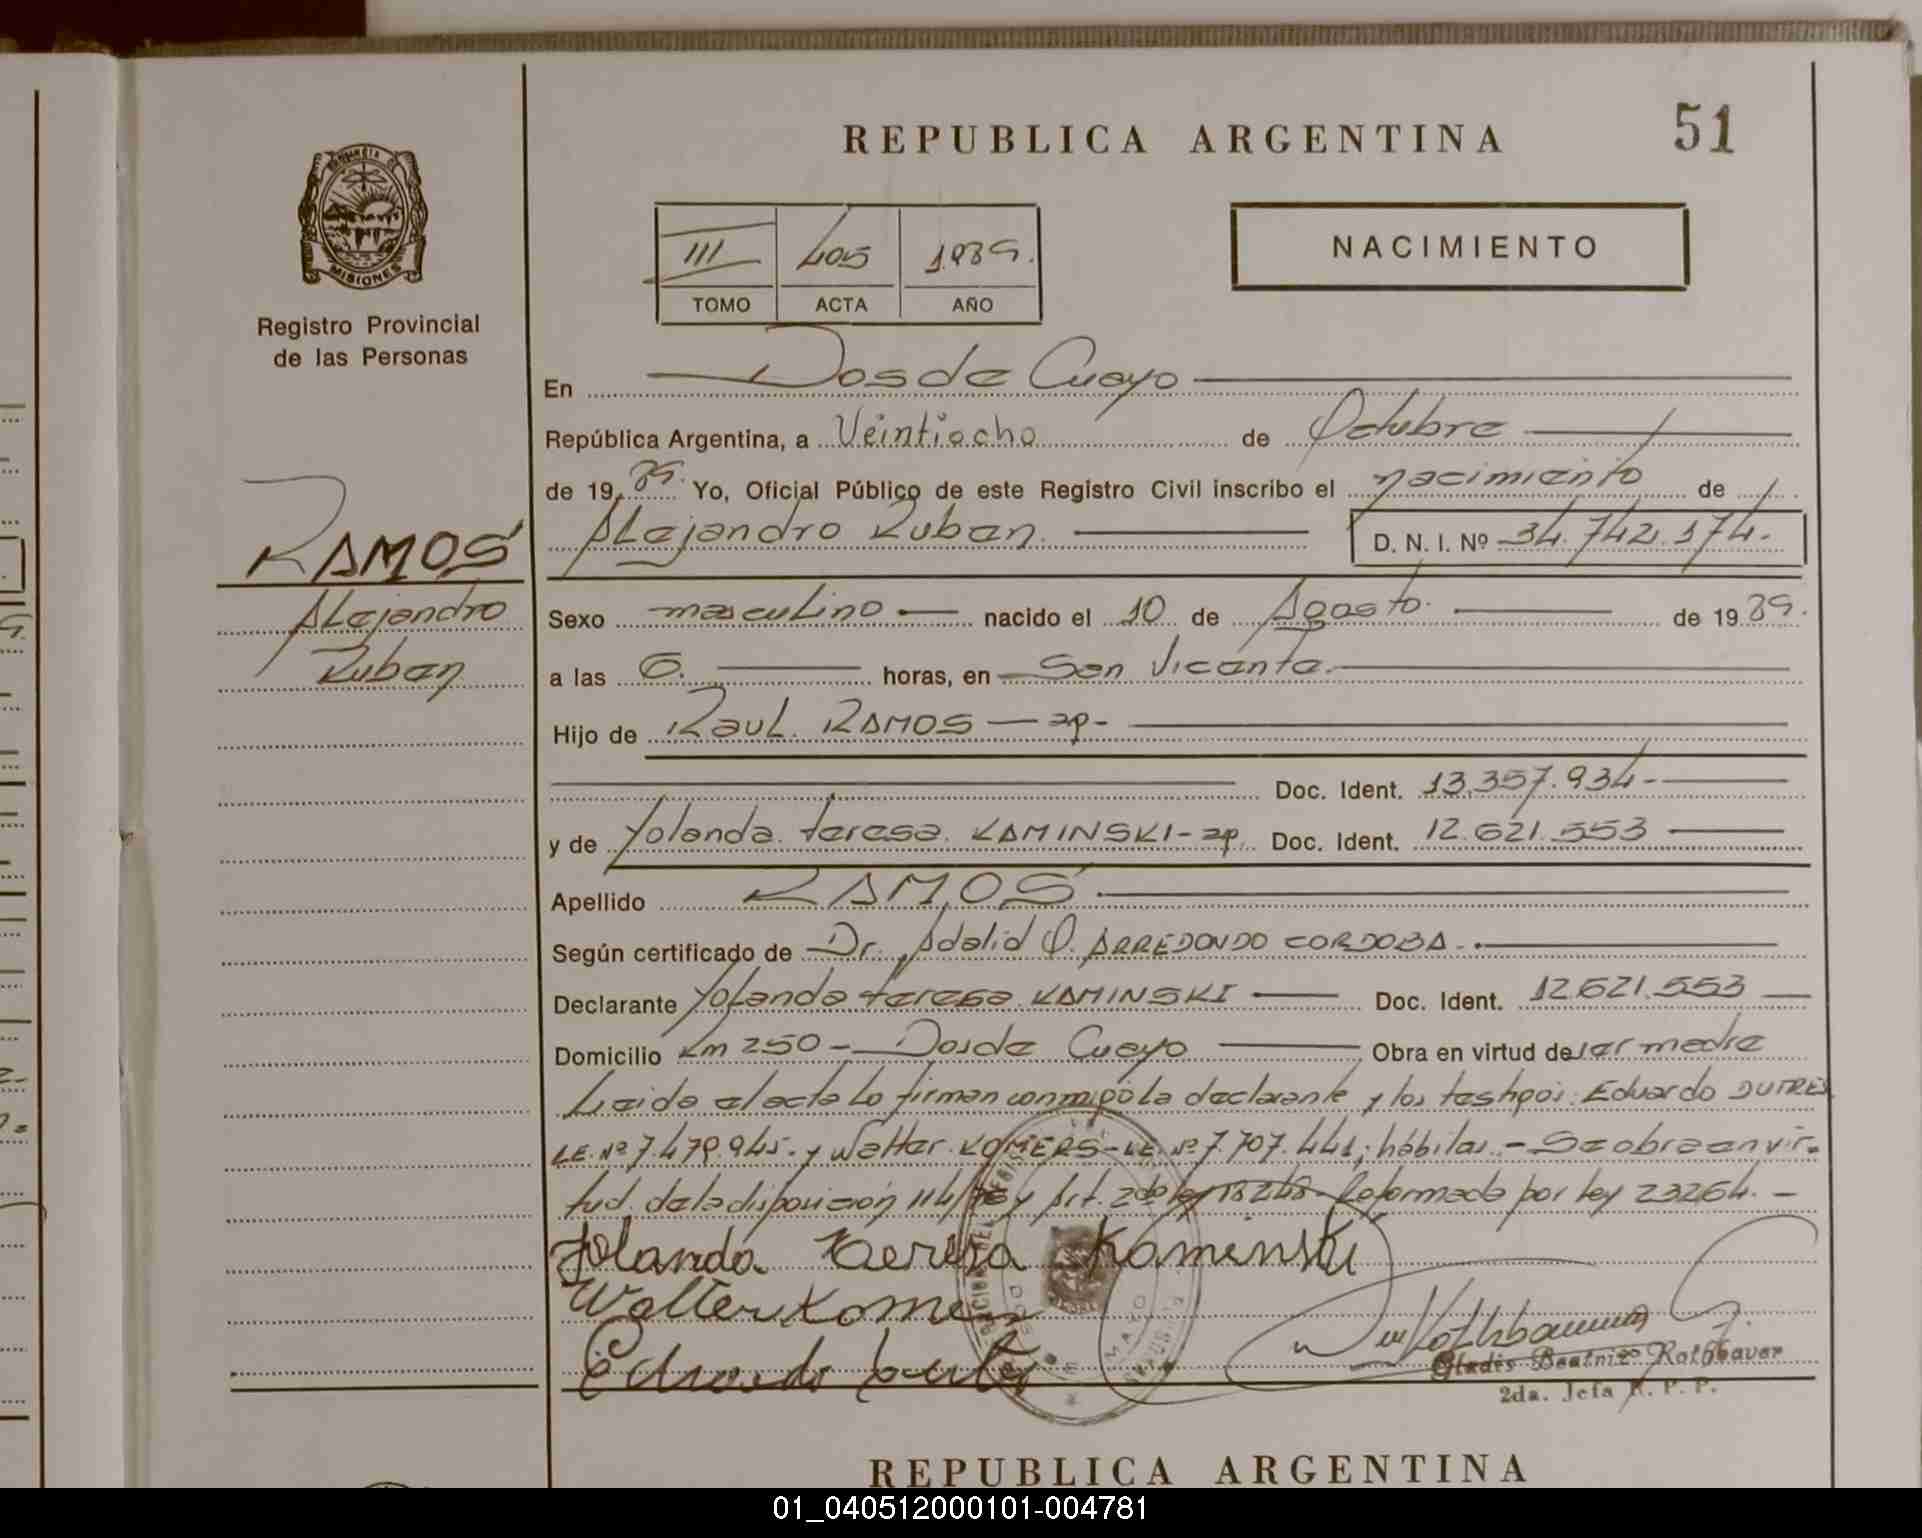 REPUBLICA ARGENTINA
51
PROVINCIA DE
MISIONES
Registro Provincial
de las Personas
III 405 1989.
TOMO ACTA AÑO
NACIMIENTO
En Dos de Mayo
República Argentina, a Veintiocho de Octubre
de 19 89. Yo, Oficial Público de este Registro Civil inscribo el nacimiento de
Alejandro Ruben. D. N. I. Nº 34.742.174.-
RAMOS
Alejandro
Ruben
Sexo masculino nacido el 10 de Agosto. de 19 89.
a las 6. horas, en San Vicente.
Hijo de Raul. RAMOS - ap-
Doc. Ident. 13.357.934-
y de Yolanda. teresa. KAMINSKI- ap. Doc. Ident. 12.621.553
Apellido RAMOS
Según certificado de Dr. Adalid O. ARREDONDO CORDOBA.
Declarante Yolanda teresa KAMINSKI Doc. Ident. 12.621.553
Domicilio Km 250 - Dos de Mayo Obra en virtud de ser madre
Leida el acta Lo firman conmigo La declarante y los testigos: Eduardo
LE. Nº 7.479.945. y Walter KOMERS- LE. Nº 7.707.441; hábiles.- Se obra en vir-
tud. de la disposición 114/76 y Art. 2do ley 18248- Reformada por Ley 23264.-
Yolanda Teresa Kaminski
Walter Komers
Eduardo
Gladis Beatriz Rothbauer
2da. Jefa R. P. P.
REPUBLICA ARGENTINA
01_040512000101-004781